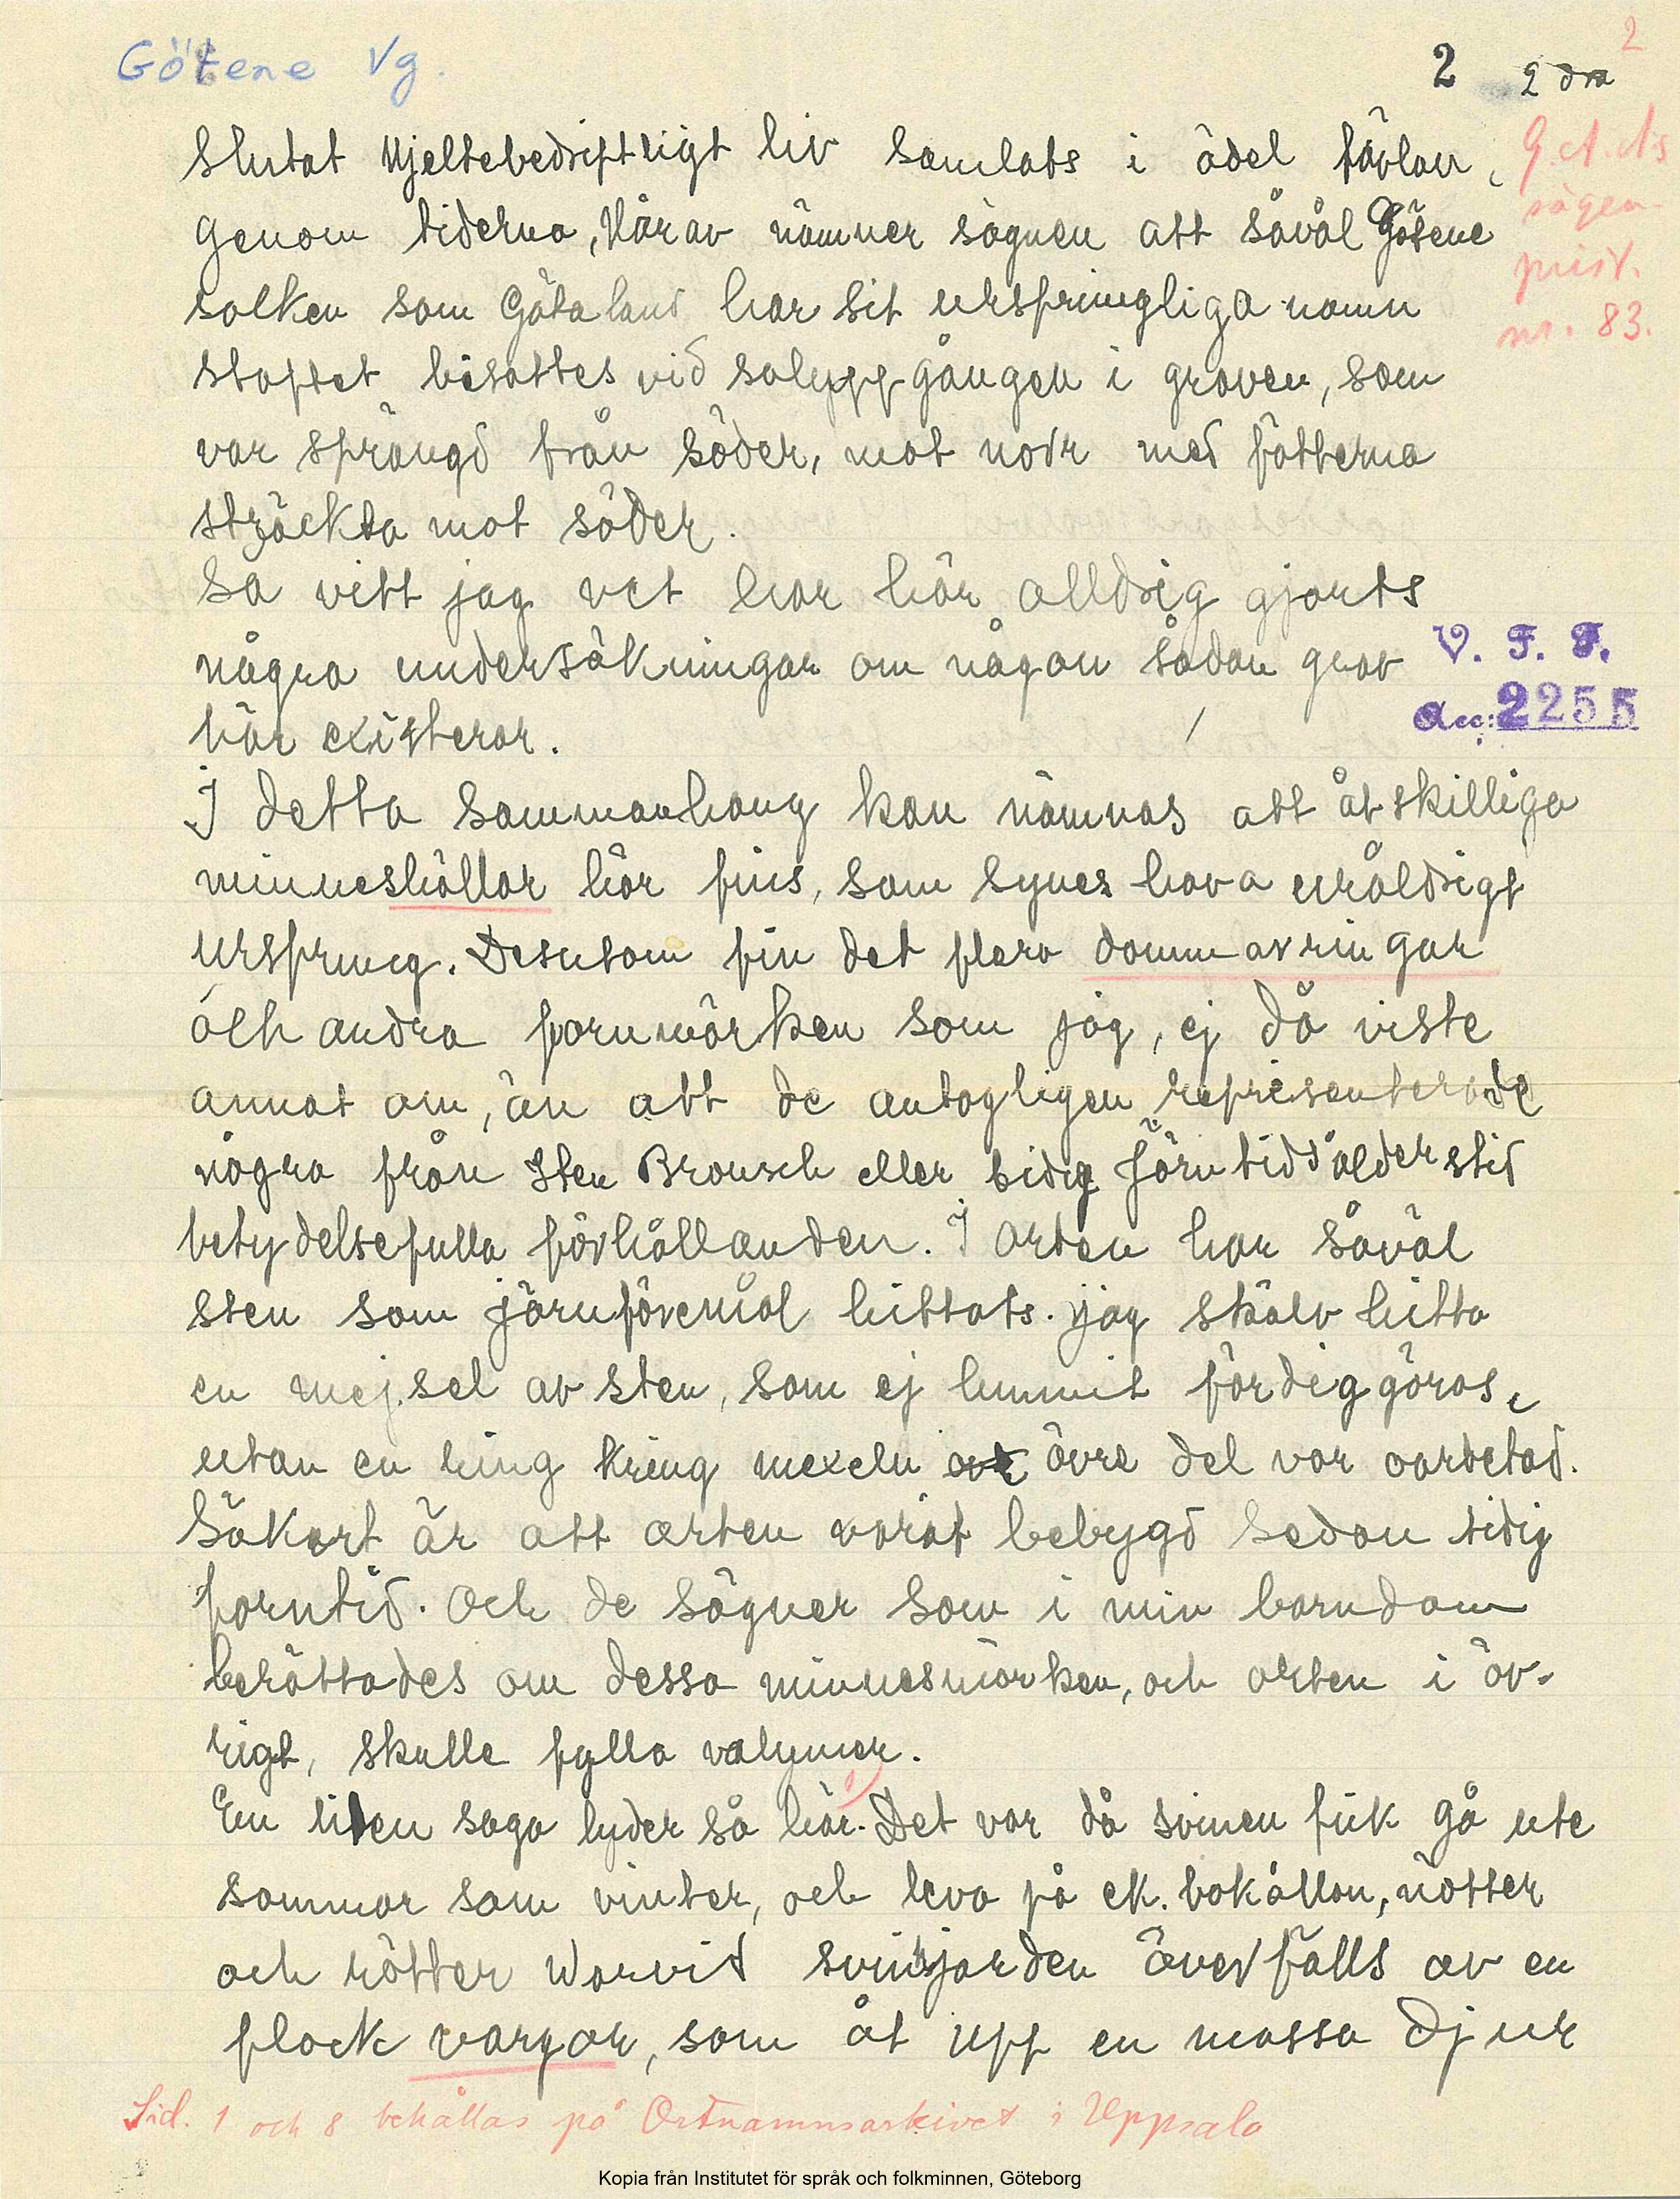 Götene Vg.
2 2 dra
2
slutat Hjeltebedriftligt liv samlats i ädel tävlan,
genom tiderna, Härav nämner sägnen att såväl Götene
solken som Götaland har sit urspringliga namn
stoftet bisattes vid soluppgången i graven, som
var sprängd från söder, mot nodr med fötterna
sträckta mot söder.
Så vitt jag vet har här alldrig gjorts
några undersökningar om någon sådan grav
här existerar.
I detta sammanhang kan nämnas att åtskilliga
minneshällar här fins, som synes hava uråldrigt
ursprung. Desutom fin det flera dommarringar
och andra fornmärken som jag, ej då viste
annat om, än att de antagligen representerade
några från Sten Bronsch eller tidig Järntidsålderstid
betydelsefulla förhållanden. I orten har såväl
sten som järnföremål hittats. jag skälv hitta
en mejsel av sten, som ej hunnit färdiggöras,
utan en ring kring mexeln övre del var oarbetad.
Säkert är att orten varit bebygd sedan tidig
forntid. Och de sägner som i min barndom
berättades om dessa minnesmärken, och orten i öv-
rigt, skulle fylla volymer.
En liten saga lyder så här. Det var då svinen fick gå ute
sommar som vinter, och leva på ek. bokållon, nötter
och rötter Warvid svinhjorden överfalls av en
flock vargar, som åt upp en massa djur
G.A.A:s
sägen-
prist.
nr. 83.
V. F. F.
Acc: 2255
Sid. 1 och 8 behållas på Ortnamnsarkivet i Uppsala
Kopia från Institutet för språk och folkminnen, Göteborg